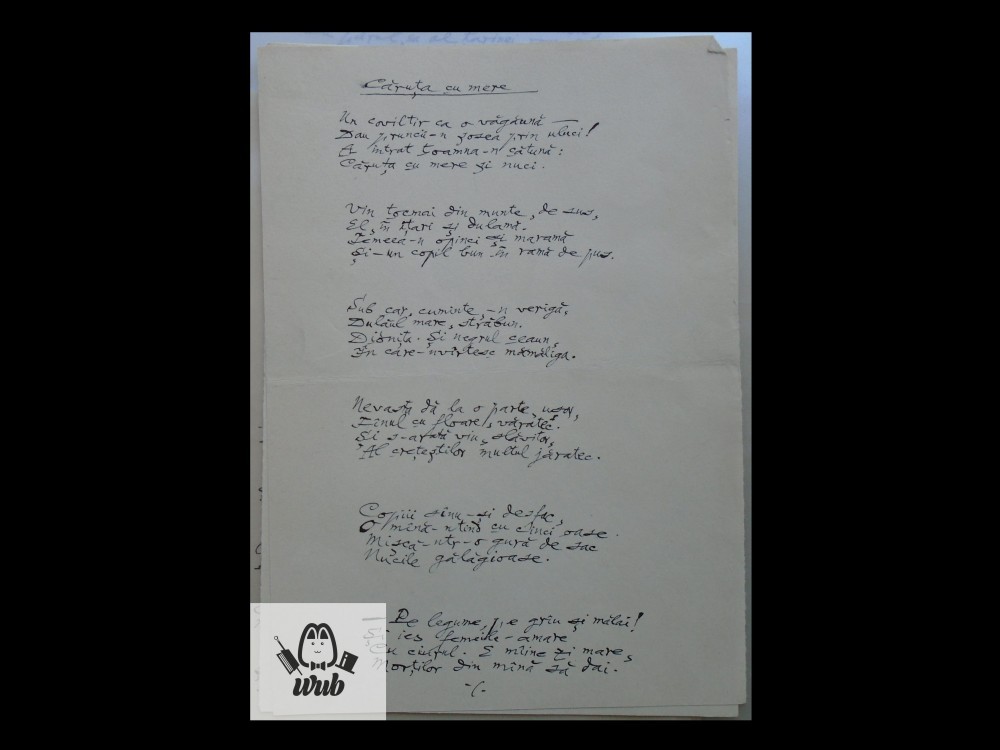 Căruța cu mere
Un coviltir ca o văgăună —
Dau pruncii-n șosea prin uluci!
A intrat toamna-n cătună:
Căruța cu mere și nuci.
Vin tocmai din munte, de sus,
El, în ițari și dulamă.
Femeea-n opinci și maramă
Și-un copil bun în ramă de pus.
Sub car, cuminte,-n verigă,
Dulăul mare, străbun.
Dihnița. Și negrul ceaun,
În care-nvîrtesc mămăliga.
Nevasta dă la o parte, ușor,
Fînul cu floare, văratec.
Și s-arată viu, slăvitor,
Al crețeștilor multul jăratec.
Copiii sînu-și desfac,
O mînă-ntind cu cinci oase.
Mișcă-ntr-o gură de sac
Nucile gălăgioase.
— Pe legume, pe grîu și mălai!
Și ies femeile-amare
Cu ciurul. E mîine zi mare,
Morților din mînă să dai.
-/-
wub